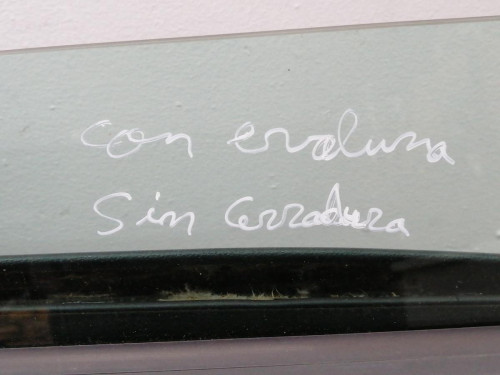 con evaluna
Sin Cerradura